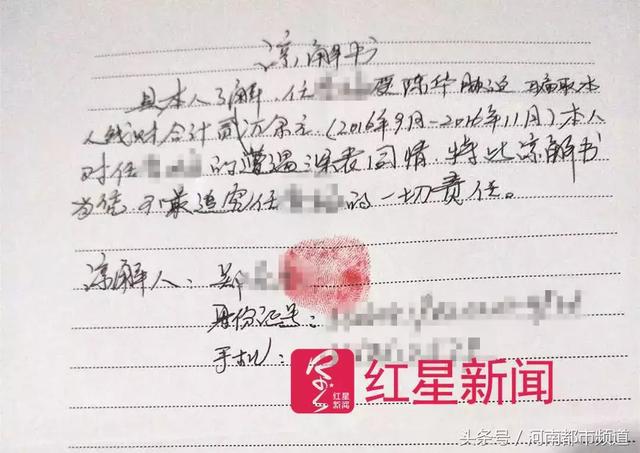 凉解书
具本人了解、任 受陈华胁迫 骗取本
人线财合计贰万余元（2016年9月-2016年11月）本人
对任 的遭遇深表同情 特此凉解书
为凭 不再追究任 的一切责任。
凉解人：郑
身份证号：
手机：
红星新闻
红星新闻
头条号 / 河南都市频道